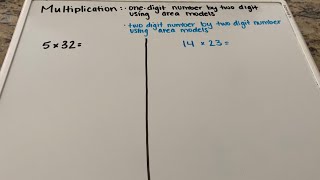 Multiplication: · one-digit number by two digit
using "area models"
· two digit number by two digit number
using "area models"
5 × 32 =
14 × 23 =